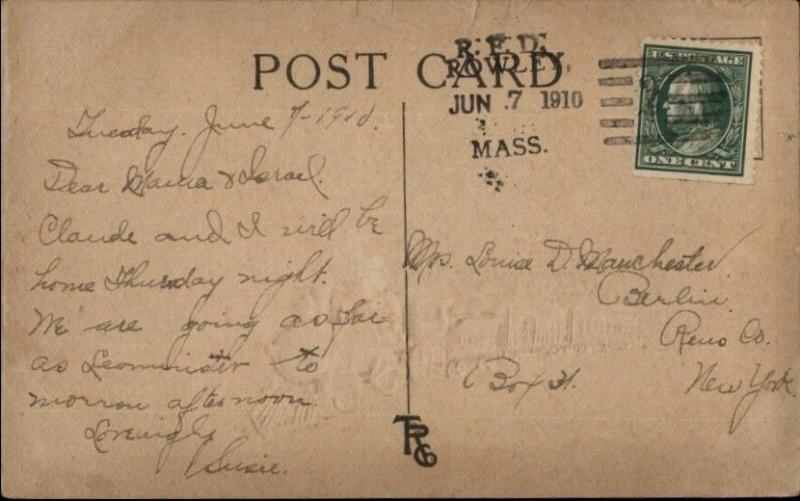 POST CARD
R.F.D.
ROWLEY,
JUN 7 1910
MASS.
U.S. POSTAGE
ONE CENT
Tuesday. June 7-1910.
Dear Mama & Israel.
Claude and I will be
home Thursday night.
We are going as far
as Leominster to
morrow afternoon.
Lovingly
Susie.
Mrs. Louise D. Manchester.
Berlin.
Co.
New York.
Box 31.
TRG